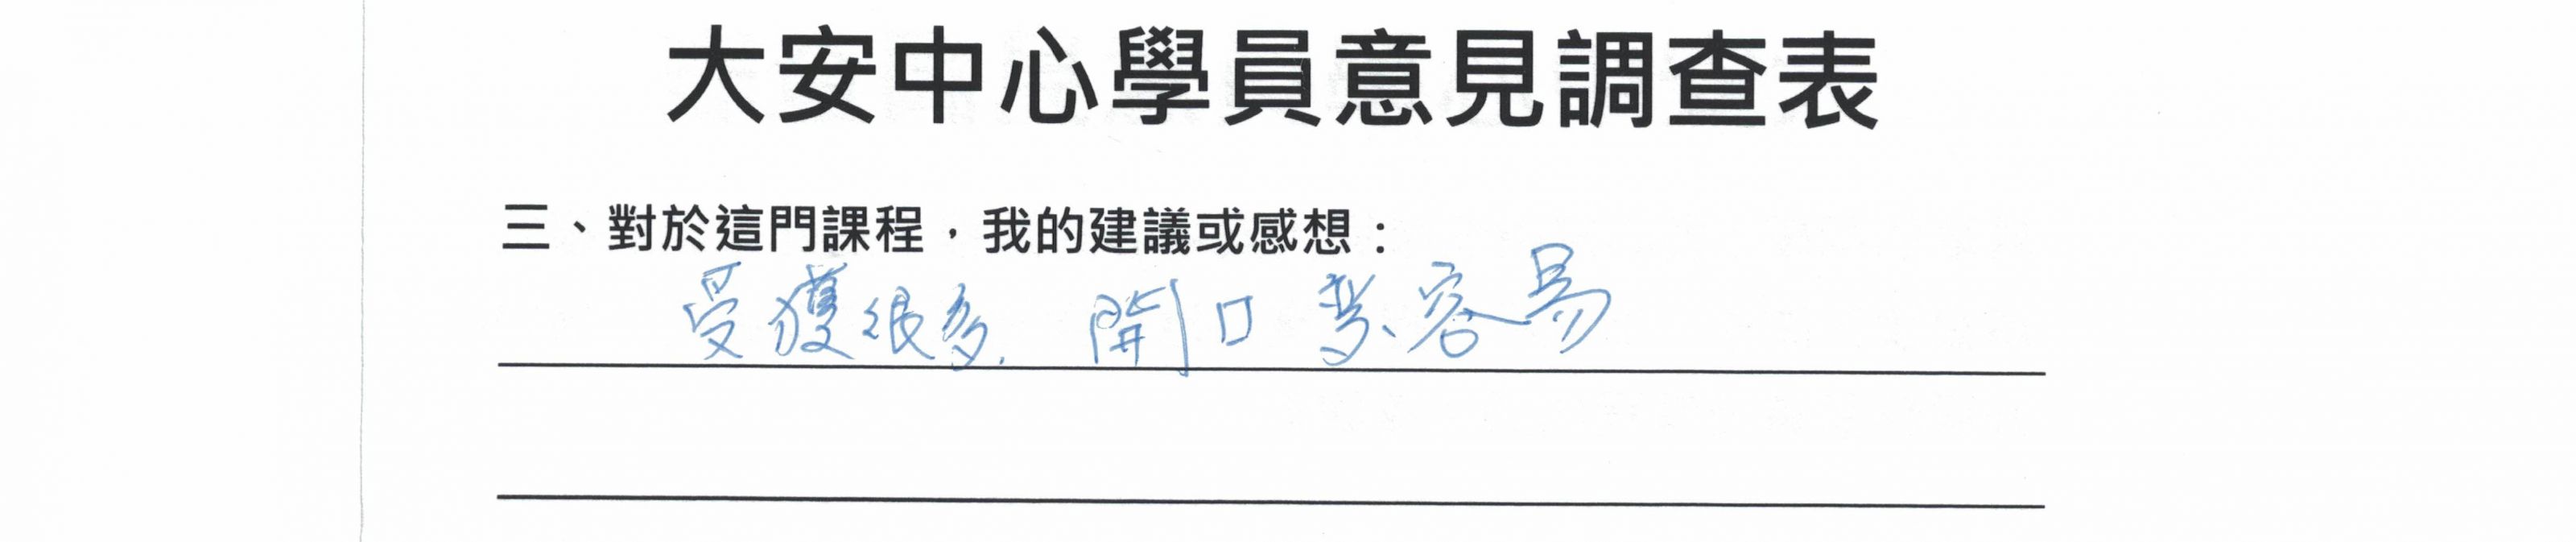 大安中心學員意見調查表
三、對於這門課程，我的建議或感想：
受獲很多. 開口 容易